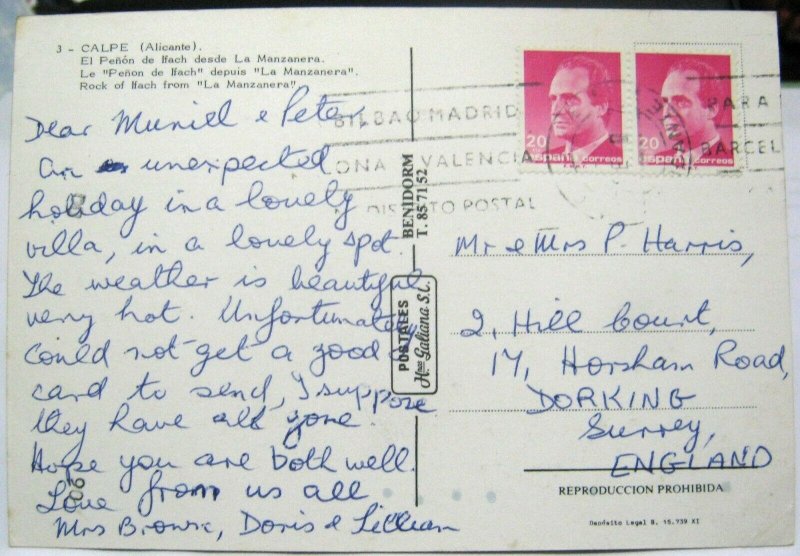 3 - CALPE (Alicante).
El Peñón de Ifach desde La Manzanera.
Le "Peñon de Ifach" depuis "La Manzanera".
Rock of Ifach from "La Manzanera"
Dear Muriel & Peter,
An unexpected
holiday in a lovely
villa, in a lovely spot.
The weather is beautiful
very hot. Unfortunately
could not get a good
card to send, I suppose
they have all gone.
Hope you are both well.
Love from us all
Mrs Browse, Doris & Lillian
BENIDORM
T. 85 71 52
POSTALES
Hnos Galiana S.C.
BILBAO MADRID
ONA VALENCIA
DISTRITO POSTAL
PARA
BARCEL
20
españa correos
20
españa correos
Mr & Mrs P. Harris,
2, Hill Court,
17, Horsham Road,
DORKING
Surrey,
ENGLAND
REPRODUCCION PROHIBIDA
Depósito Legal B. 15.739 XI
06